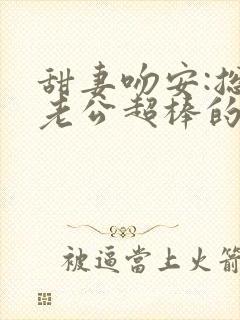 甜妻吻安:
老公超棒的
被逼當上火箭